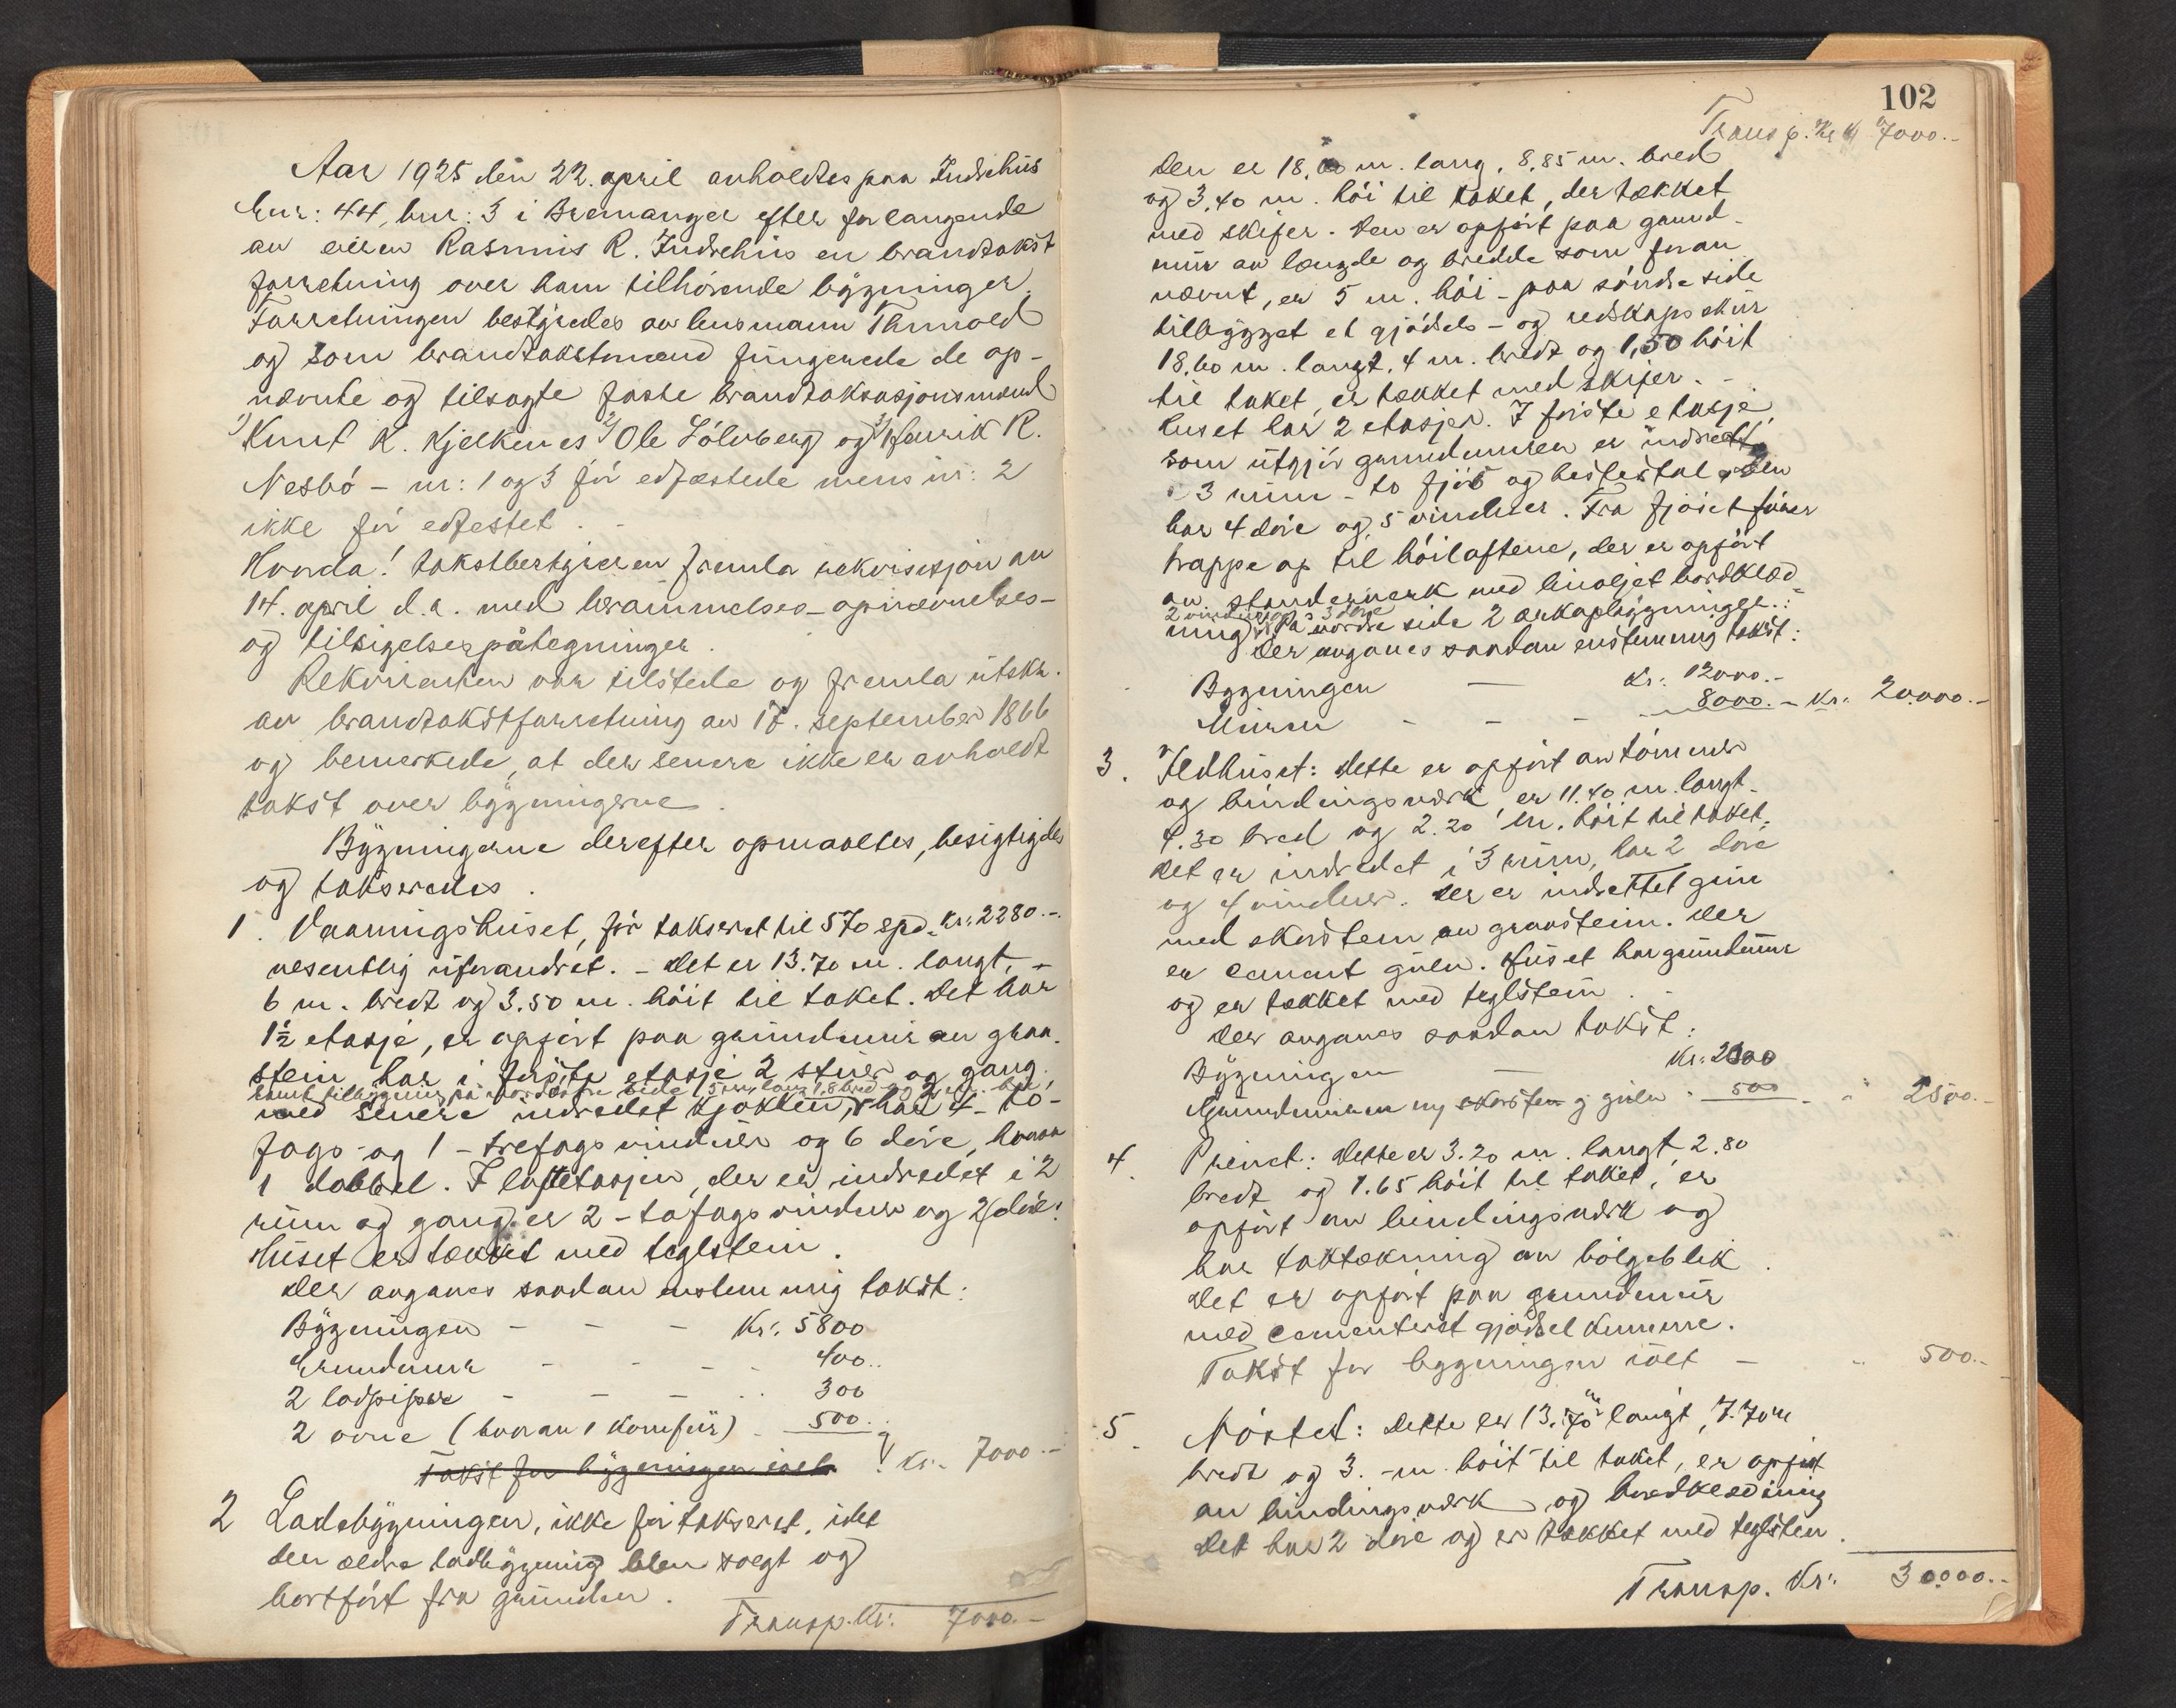 Aar 1925 den 22. april avholdtes paa Indrehus
Gnr: 44, bnr: 3 i Bremanger efter forlangende
av eieren Rasmus R. Indrehus en brandtakst
forretning over ham tilhörende bygninger.
Forretningen bestyredes av lensmann Thunold
og som brandtakstmænd fungerede de op-
nævnte og tilsagte faste brandtaksasjonsmænd
1) Knut K. Kjelkenes 2) Ole Sölvberg og 3) Henrik R.
Nesbö - nr: 1 og 3 för edfæstede mens nr: 2
ikke för edfestet. -
Hvorda! takstbestyreren fremla rekvisisjon av
14. april d.a. med berammelses- opnævnelses-
og tilsigelserpåtegninger.
Rekvirenten var tilstede og fremla utskr.
av brandtakstforretning av 17. september 1866
og bemerkede, at der senere ikke er avholdt
takst over bygningerne.
Bygningerne derefter opmaaltes, besigtigdes
og takseredes.
1. Vaaningshuset, för taksert til 570 spd. Kr: 2280.-
vesentlig uforandret. - Det er 13.70 m. langt, -
6 m. bredt og 3.50 m. höit til taket. Det har
1½ etasje, er opfört paa grundmur av graa-
stein har i förste etasje 2 stuer og gang,
samt tilbygning på nordöstre side 5 m. lang 1,8 bred og 2 m. höi,
med senere indredet kjökken, har 4 - to-
fags- og 1 - trefags vinduer og 6 döre, hvorav
1 dobbel. I loftetasjen, der er indredet i 2
rum og gang er 2 - tofags vinduer og 2 döre.
Huset er tækket med teglstein.
Der avgaves saadan enstemmig takst:
Bygningen - - - Kr: 5800
Grundmur - - - 400..
2 ladpiper - - - 300
2 ovne (hvorav 1 komfur) - 500.
Takst for bygningen ialt Kr. 7000.-
2 Ladebygningen, ikke för taksert, idet
den ældre ladbygning blev solgt og
bortfört fra grunden.
Transp. Kr: 7000.-
102
Transp. Kr 7000.-
Den er 18,60 m. lang, 8,85 m. bred
og 3,40 m. höi til taket, der tækket
med skifer. Den er opfört paa grund-
mur av længde og bredde som foran
nævnt, er 5 m. höi - paa söndre side
tilbygget et gjödsels- og redskapsskur
18,60 m. langt, 4 m. bredt og 1,50 höit
til taket, er tækket med skifer. -
Huset har 2 etasjer. I förste etasje,
som utgjör grundmuren er indrettet
i 3 rum - to fjös og hestestal. Den
har 4 döre og 5 vinduer. Fra fjöset förer
trappe op til höiloftene, der er opfört
av stenderverk med linoljet bordklæd-
2 vinduer og 3 döre
ning. På nordre side 2 arkopbygninger. -
Der avgaves saadan enstemmig takst:
Bygningen - Kr: 12000.-
Muren - - - 8000.- Kr: 20.000.-
3. Ildhuset: Dette er opfört av tömmer
og bindingsværk, er 11.40 m. langt-
4.30 bred og 2.20 m. höit til taket.
Det er indredet i 3 rum, har 2 döre
og 4 vinduer. Der er indrettet grue
med skorstein av graastein. Der
er cement gulv. Huset har grundmur
og er tækket med teglstein. -
Der avgaves saadan takst:
Bygningen - Kr: 2000
Grundmuren ny skorsten og gulv " 500 - " 2500.-
4. Privet: Dette er 3.20 m. langt, 2.80
bredt og 1.65 höit til taket, er
opfört av bindingsverk og
har taktækning av bölgeblik.
Det er opfört paa grundmur
med cementerst gjödselkumme.
Takst for bygningen ialt - " 500.-
5. Nöstet: Dette er 13.70 m langt, 7.70 m
bredt og 3. - m. höit til taket, er opfört
av bindingsverk og bordklædning
Det har 2 döre og er tækket med teglsten.
Transp. Kr: 30000.-